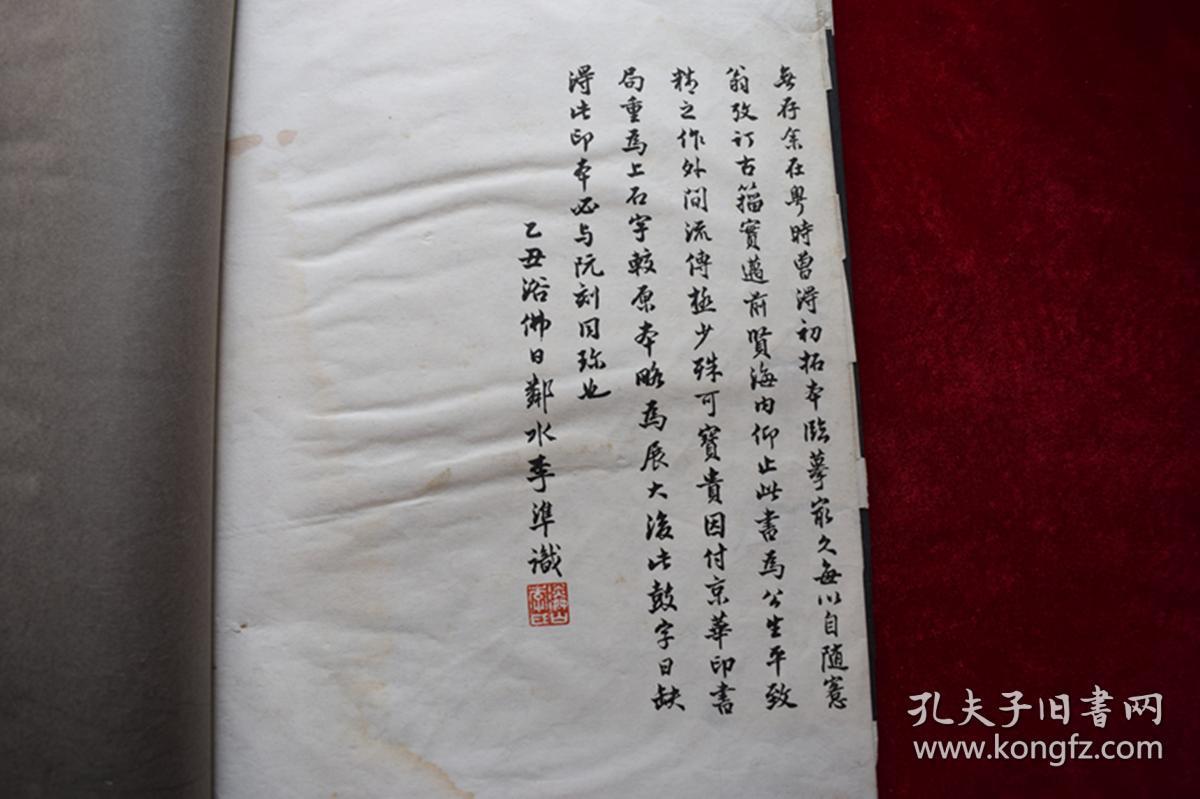 無存余在粤時曽得初拓本臨摹最久每以自随窓
翁攷訂古籀實邁前賢海内仰止此書為公生平致
精之作外間流傳極少殊可寶貴因付京華印書
局重為上石字較原本略為展大後此鼓字日缺
得此印本必与阮刻同珎也
乙丑浴佛日鄰水李準識
孔夫子旧書网
www.kongfz.com